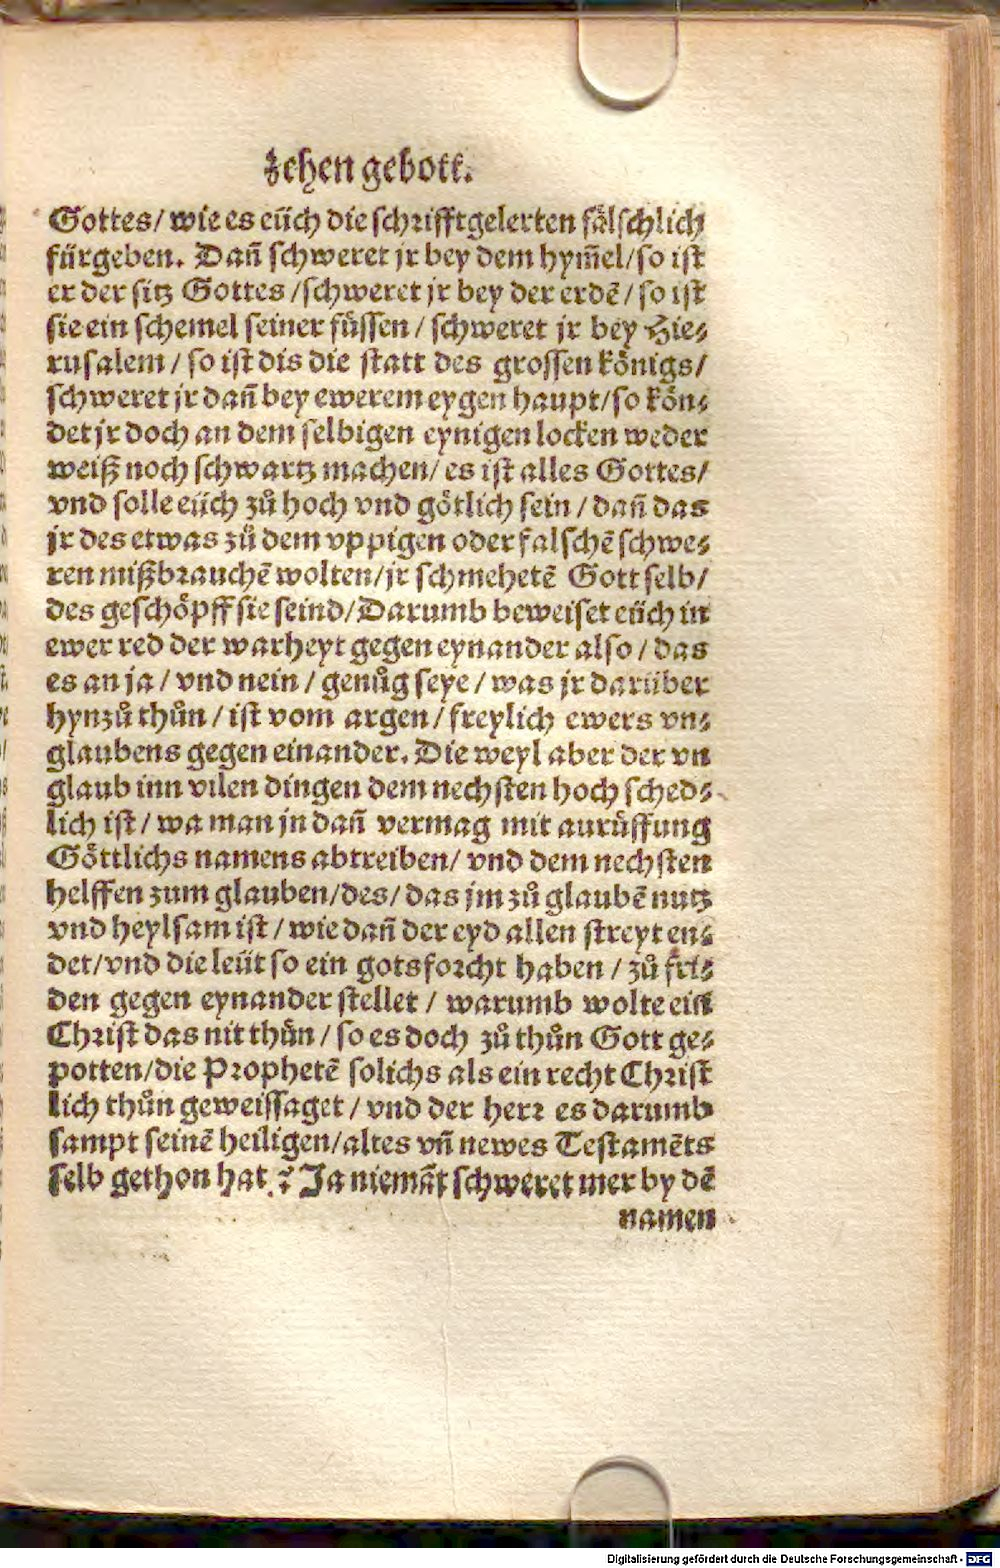 zehen gebott.
Gottes/ wie es eüch die schrifftgelerten fälschlich
fürgeben. Dañ schweret jr bey dem hym̃el/ so ist
er der sitz Gottes /schweret jr bey der erdẽ/ so ist
sie ein schemel seiner füssen / schweret jr bey Hie⸗
rusalem / so ist dis die statt des grossen königs/
schweret jr dañ bey ewerem eygen haupt/so kön⸗
det jr doch an dem selbigen eynigen locken weder
weiß noch schwartz machen/ es ist alles Gottes/
vnd solle eüch zů hoch vnd götlich sein / dañ das
jr des etwas zů dem vppigen oder falschẽ schwe⸗
ren mißbrauchẽ wolten/jr schmehetẽ Gott selb/
des geschöpff sie seind/Darumb beweiset eüch in
ewer red der warheyt gegen eynander also / das
es an ja / vnd nein / genůg seye / was jr darüber
hynzů thůn / ist vom argen / freylich ewers vn⸗
glaubens gegen einander. Die weyl aber der vn
glaub inn vilen dingen dem nechsten hoch sched⸗
lich ist / wa man jn dañ vermag mit anrůffung
Göttlichs namens abtreiben/ vnd dem nechsten
helffen zum glauben/des/ das jm zů glaubẽ nutz
vnd heylsam ist / wie dañ der eyd allen streyt en⸗
det/vnd die leüt so ein gotsforcht haben / zů fri⸗
den gegen eynander stellet / warumb wolte ein
Christ das nit thůn / so es doch zů thůn Gott ge⸗
potten/die Prophetẽ solichs als ein recht Christ
lich thůn geweissaget / vnd der herr es darumb
sampt seinẽ heiligen/altes vñ newes Testamẽts
selb gethon hat.? Ja niemãt schweret mer by dẽ
namen
Digitalisierung gefördert durch die Deutsche Forschungsgemeinschaft - DFG